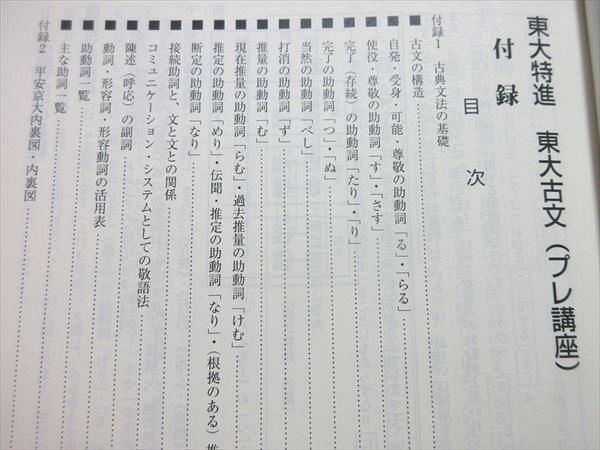 東大特進 東大古文(プレ講座)
付録
目次
付録1 古典文法の基礎
■古文の構造
■自発・受身・可能・尊敬の助動詞「る」・「らる」
■使役・尊敬の助動詞「す」・「さす」
■完了(存続)の助動詞「たり」・「り」
■完了の助動詞「つ」・「ぬ」
■当然の助動詞「べし」
■打消の助動詞「ず」
■推量の助動詞「む」
■現在推量の助動詞「らむ」・過去推量の助動詞「けむ」
■推定の助動詞「めり」・伝聞・推定の助動詞「なり」・(根拠のある)推
■断定の助動詞「なり」
■接続助詞と、文と文との関係
■コミュニケーション・システムとしての敬語法
■陳述(呼応)の副詞
■動詞・形容詞・形容動詞の活用表
■助動詞一覧
■主な助詞一覧
付録2 平安京大内裏図・内裏図